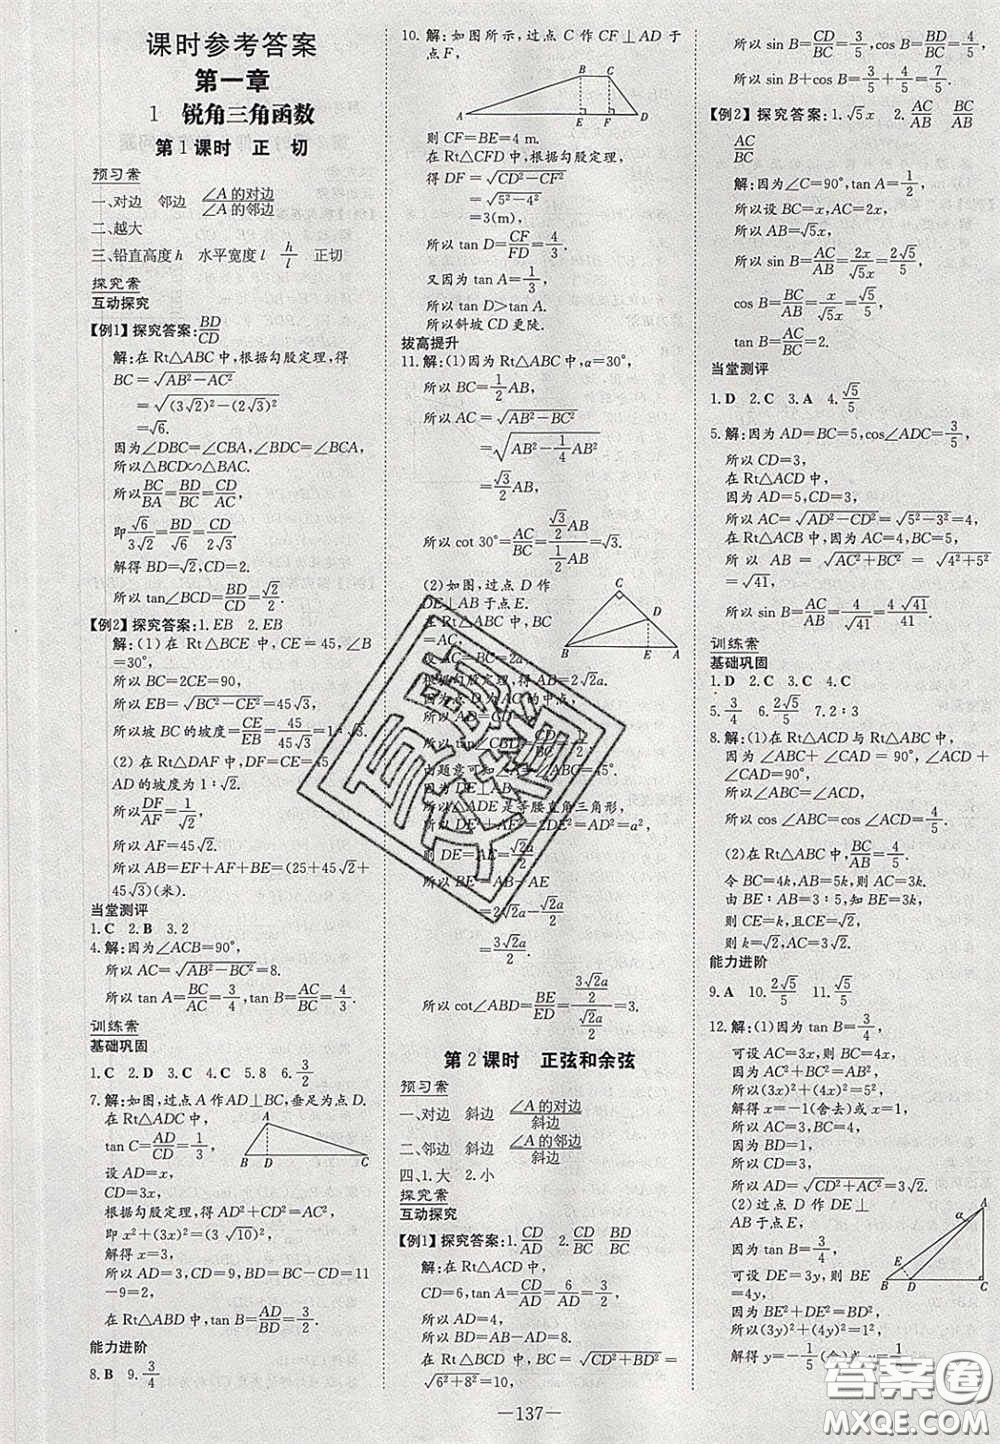 课时参考答案
第一章
1 锐角三角函数
第1课时 正 切
预习案
一、对边 邻边 ∠A的对边/∠A的邻边
二、越大
三、铅直高度h 水平宽度l h/l 正切
探究案
互动探究
【例1】探究答案:BD/CD
解:在Rt△ABC中,根据勾股定理,得
BC=√(AB²-AC²)
=√((3√2)²-(2√3)²)
=√6.
因为∠DBC=∠CBA,∠BDC=∠BCA,
所以△BCD∽△BAC.
所以BC/BA=BD/BC=CD/AC
即√6/(3√2)=BD/√6=CD/(2√3).
解得BD=√2,CD=2.
所以tan∠DCB=BD/CD=√2/2.
【例2】探究答案:1.EB 2.EB
解:(1)在Rt△BCE中,CE=45,∠B
=30°,
所以BC=2CE=90,
所以EB=√(BC²-CE²)=45√3.
所以坡BC的坡度=CE/EB=45/(45√3)=1:√3.
(2)在Rt△DAF中,DF=CE=45,
AD的坡度为1:√2.
所以DF/AF=1/√2,
所以AF=45√2.
所以AB=EF+AF+BE=(25+45√2+
45√3)(米).
当堂测评
1.C 2.B 3.2
4.解:因为∠ACB=90°,
所以AC=√(AB²-BC²)=8.
所以tan A=BC/AC=3/4,tan B=AC/BC=4/3.
训练案
基础巩固
1.C 2.D 3.C 4.C 5.8 6.1/3
7.解:如图,过点A作AD⊥BC,垂足为点D.
在Rt△ADC中,
tan C=AD/CD=1/3,
设AD=x,
CD=3x,
根据勾股定理,得AD²+CD²=AC²,
即x²+(3x)²=(3√10)²,
解得x=3.
所以AD=3,CD=9,BD=BC-CD=11
-9=2,
在Rt△ABD中,tan B=AD/BD=3/2.
能力进阶
8.B 9.3/4
10.解:如图所示,过点C作CF⊥AD于
点F,
B C
A E F D
则CF=BE=4 m.
在Rt△CFD中,根据勾股定理,
得DF=√(CD²-CF²)
=√(5²-4²)
=3(m),
所以tan D=CF/FD=4/3.
又因为tan A=1/3,
所以tan D>tan A.
所以斜坡CD更陡.
拔高提升
11.解:(1)因为Rt△ABC中,α=30°,
所以BC=1/2AB,
所以AC=√(AB²-BC²)
=√(AB²-1/4AB²)
=√3/2AB,
所以cot 30°=AC/BC=(√3/2AB)/(1/2AB)=√3.
(2)如图,过点D作
DE⊥AB于点E.
在Rt△ABC中,BC
=AC,
设AC=BC=2a,
根据勾股定理,得AB=2√2a.
因为点D为AC的中点,
所以AD=CD=
所以tan∠
由题意可知∠A=∠ =45°.
因为DE⊥AB,
所以△ADE是等腰直角三角形,
所以DE²+ =2DE²=AD²=a²,
则DE=AE=√2a/2
所以BE=AB-AE
=2√2a-√2a/2
=3√2a/2.
所以cot∠ABD=BE/ED=(3√2a/2)/(√2a/2)=3.
第2课时 正弦和余弦
预习案
一、对边 斜边 ∠A的对边/斜边
二、邻边 斜边 ∠A的邻边/斜边
四、1.大 2.小
探究案
互动探究
【例1】探究答案:1.CD/AD 2.CD/BC BD/BC
解:在Rt△ACD中,
CD=6,tan A=CD/AD=6/AD=3/2,
所以AD=4,
所以BD=AB-AD=8.
在Rt△BCD中,BC=√(CD²+BD²)
=√(6²+8²)=10,
所以sin B=CD/BC=3/5,cos B=BD/BC=4/5.
所以sin B+cos B=3/5+4/5=7/5.
【例2】探究答案:1.√5x 2.AC/AB BC/AB
AC/BC
解:因为∠C=90°,tan A=1/2,
所以设BC=x,AC=2x,
所以AB=√5x,
所以sin B=AC/AB=2x/(√5x)=2√5/5,
cos B=BC/AB=x/(√5x)=√5/5,
tan B=AC/BC=2.
当堂测评
1.D 2.C 3.A 4.√5/5
5.解:因为AD=BC=5,cos∠ADC=3/5,
所以CD=3,
在Rt△ACD中,
因为AD=5,CD=3,
所以AC=√(AD²-CD²)=√(5²-3²)=4,
在Rt△ACB中,因为AC=4,BC=5,
所以AB=√(AC²+BC²)=√(4²+5²)
=√41,
所以sin B=AC/AB=4/√41=4√41/41.
训练案
基础巩固
1.D 2.C 3.C 4.C
5.3/4 6.2√5/5 7.2:3
8.解:(1)在Rt△ACD与Rt△ABC中,
因为∠ABC+∠CAD=90°,∠ACD+
∠CAD=90°,
所以∠ABC=∠ACD,
所以cos∠ABC=cos∠ACD=4/5.
(2)在Rt△ABC中,BC/AB=4/5,
令BC=4k,AB=5k,则AC=3k,
由BE:AB=3:5,知BE=3k,
则CE=k,且CE=√2,
则k=√2,AC=3√2.
能力进阶
9.A 10.2√5/5 11.√5/5
12.解:(1)因为tan B=3/4,
可设AC=3x,BC=4x,
所以(3x)²+(4x)²=5²,
解得x=-1(舍去)或x=1,
所以AC=3,BC=4,
因为BD=1,
所以CD=3,
所以AD=√(CD²+AC²)=3√2.
(2)过点D作DE⊥
AB于点E,
因为tan B=3/4,
可设DE=3y,则BE
=4y,
因为BE²+DE²=BD²,
所以(3y)²+(4y)²=1²,
解得y=-1/5(舍)或y=1/5,
—137—
答案圈
MXQE.COM